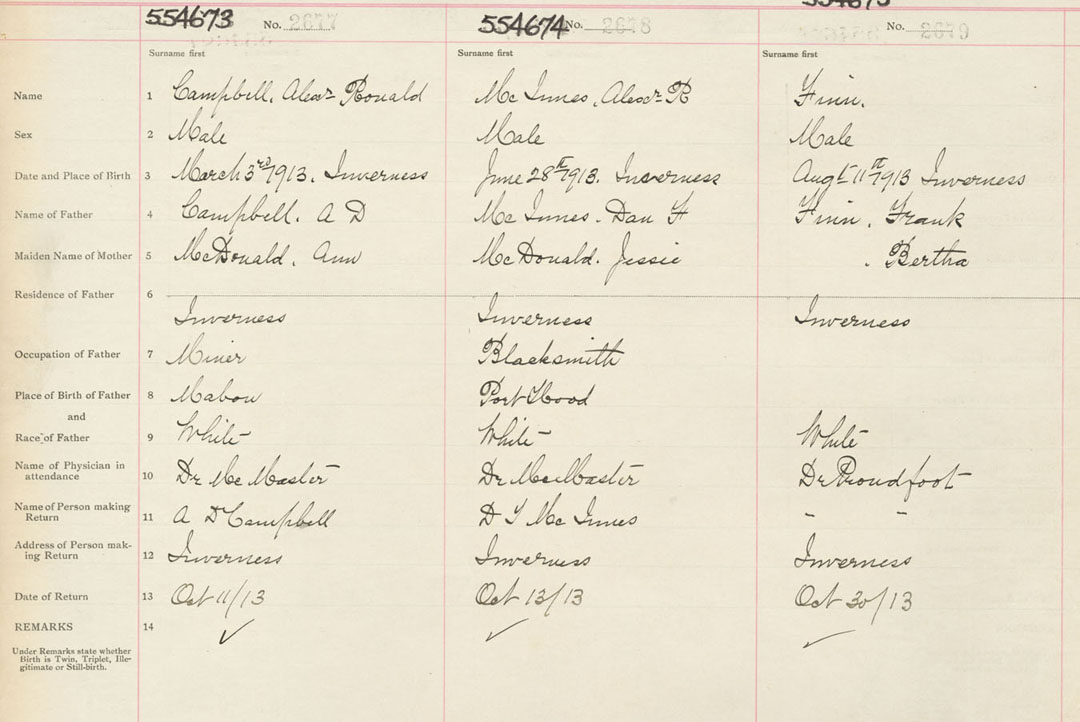 554673 No. 2677 554674 No. 2678 No. 2679
Surname first Surname first Surname first
Name 1 Campbell, Alexr Ronald Mc Innes, Alexr R Finn.
Sex 2 Male Male Male
Date and Place of Birth 3 March 3rd 1913. Inverness June 28th 1913. Inverness Augt 11th 1913 Inverness
Name of Father 4 Campbell. A D Mc Innes. Dan F Finn, Frank
Maiden Name of Mother 5 McDonald, Ann McDonald. Jessie , Bertha
Residence of Father 6
Inverness Inverness Inverness
Occupation of Father 7 Miner Blacksmith
Place of Birth of Father 8 Mabou Port Hood
and
Race of Father 9 White White White
Name of Physician in
attendance 10 Dr McMaster Dr MacMaster Dr Proudfoot
Name of Person making
Return 11 A D Campbell D F Mc Innes - -
Address of Person mak-
ing Return 12 Inverness Inverness Inverness
Date of Return 13 Oct 11/13 Oct 13/13 Oct 30/13
REMARKS 14 ✓ ✓ ✓
Under Remarks state whether
Birth is Twin, Triplet, Ille-
gitimate or Still-birth.